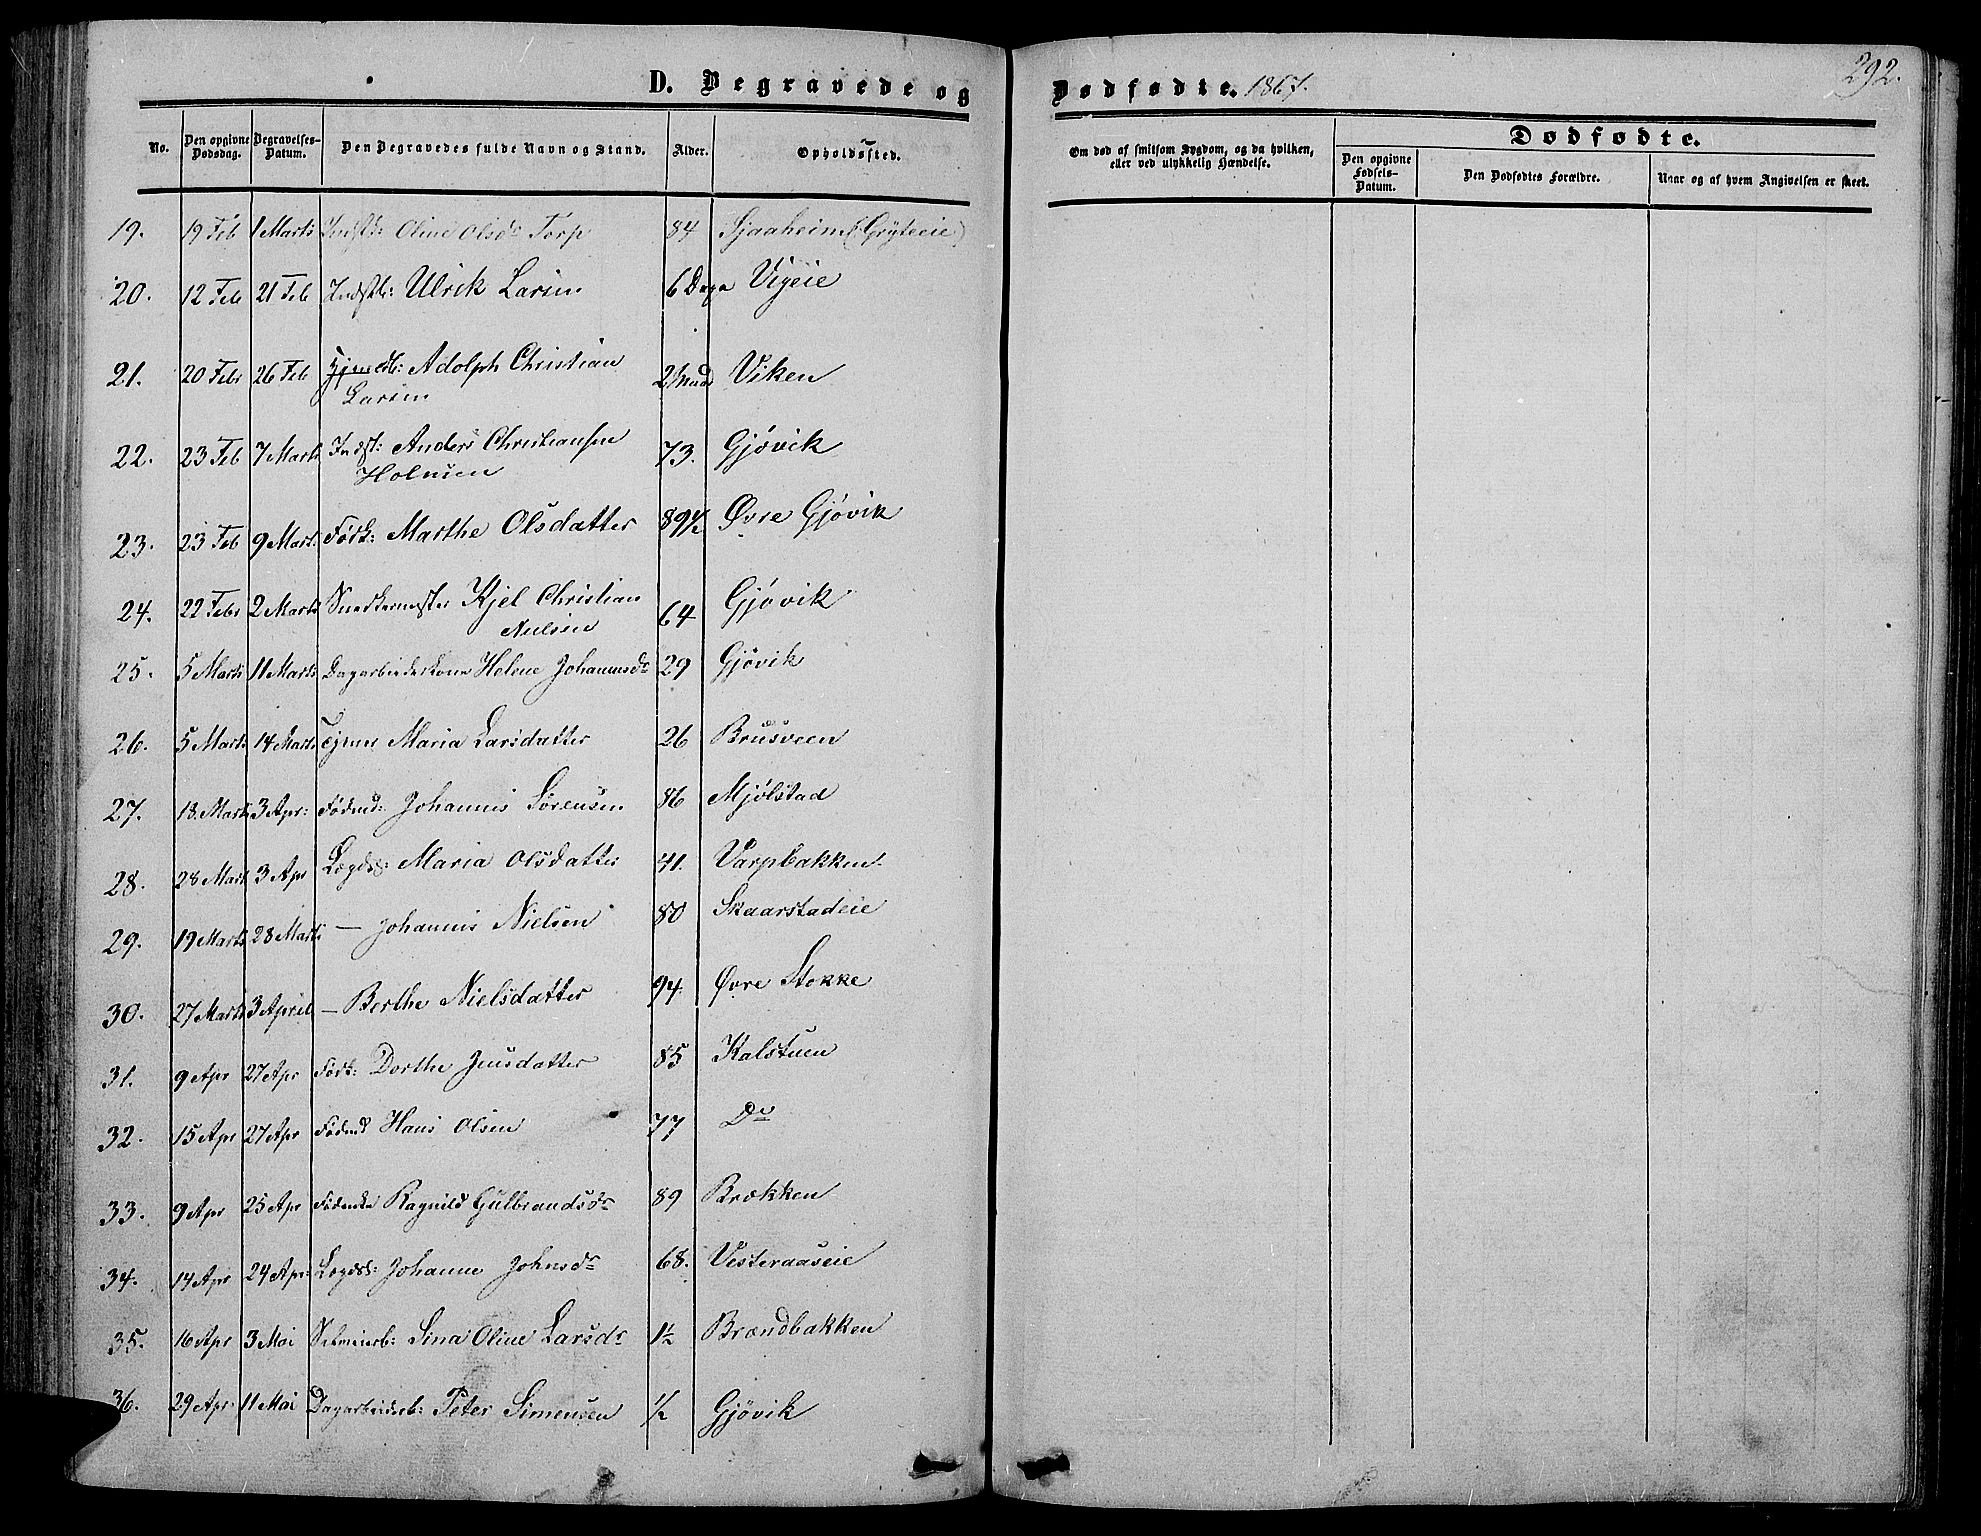 D. Begravede og Dødfødte. 1867. 292.
No. Den opgivne Dødsdag. Begravelses-Datum. Den Begravedes fulde Navn og Stand. Alder. Opholdssted.
Om død af smitsom Sygdom, og da hvilken, eller ved ulykkelig Hændelse.
Dødfødte.
Den opgivne Fødsels-Datum. Den Dødfødtes Forældre. Naar og af hvem Angivelsen er skeet.
19. 19 Feb 1 Marts Indstk: Oline Olsdr Torp 84 Sjaaheim (Gryteeie)
20. 12 Feb 21 Feb Indstb: Ulrik Larsen 6 Dage Vigeie
21. 20 Febr 26 Feb Tjenerb: Adolph Christian
Larsen 2 Mnd Viken
22. 23 Feb 7 Marts Indst: Anders Christiansen
Holmsen 73. Gjøvik
23. 23 Feb 9 Mart: Førk: Marthe Olsdatter 89½ Øvre Gjøvik
24. 22 Febr 2 Marts Snedkermester Kjel Christian
Nielsen 64 Gjøvik
25. 5 Marts 11 Marts Dagarbeiderkone Helene Johannesdr 29 Gjøvik
26. 5 Marts 14 Marts Tjener Maria Larsdatter 26 Brusveen
27. 13 Marts 3 Apr: Fødrd: Johannes Sørensen 86 Mjølstad
28. 28 Mart 3 Apr Lægds: Maria Olsdatter 41. Varpbakken
29. 19 Marts 28 Marts — Johannes Nielsen 80 Skaarstadeie
30. 27 Marts 3 April — Berthe Nielsdatter 94. Øvre Stokke
31. 9 Apr 27 Apr Førk: Dorthe Jensdatter 85 Kalstuen
32. 15 Apr 27 Apr Hans Olsen 77 Do
33. 9 Apr 25 Apr Ragnild Gulbrandsdr 89 Brækken
34. 14 Apr 24 Apr: Lægdsl: Johanne Johnsdr 68. Vesteraaseie
35. 16 Apr 3 Mai Sina Oline Larsdr 1½ Brændbakken
36. 29 Apr 11 Mai Dagarbeiderb: Peter Simensen ½ Gjøvik